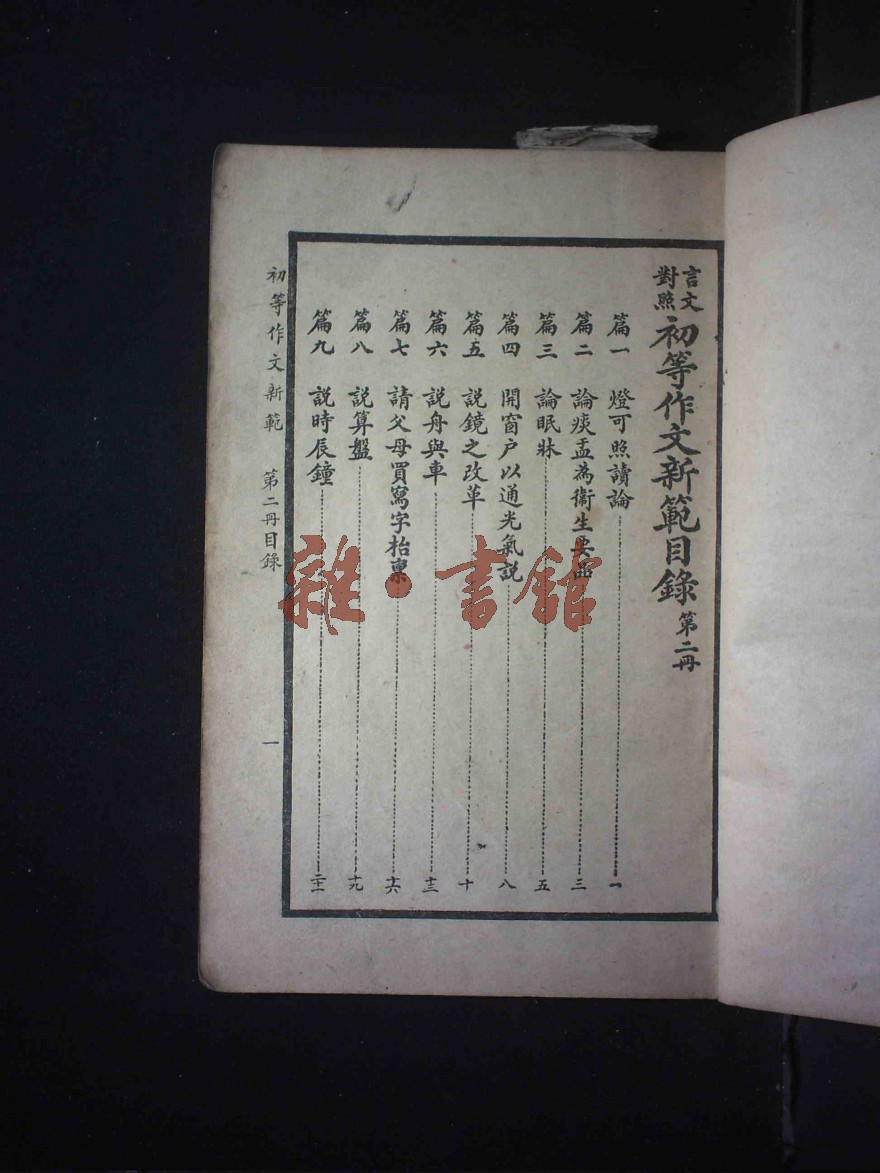 言文對照初等作文新範目錄 第二冊
篇一 燈可照讀論 一
篇二 論痰盂為衞生要品 三
篇三 論眠牀 五
篇四 開窗户以通光氣説 八
篇五 説鏡之改革 十
篇六 説舟與車 十三
篇七 請父母買寫字枱稟 十六
篇八 説算盤 十九
篇九 説時辰鐘 二十一
初等作文新範 第二冊目錄 一
雜·書館